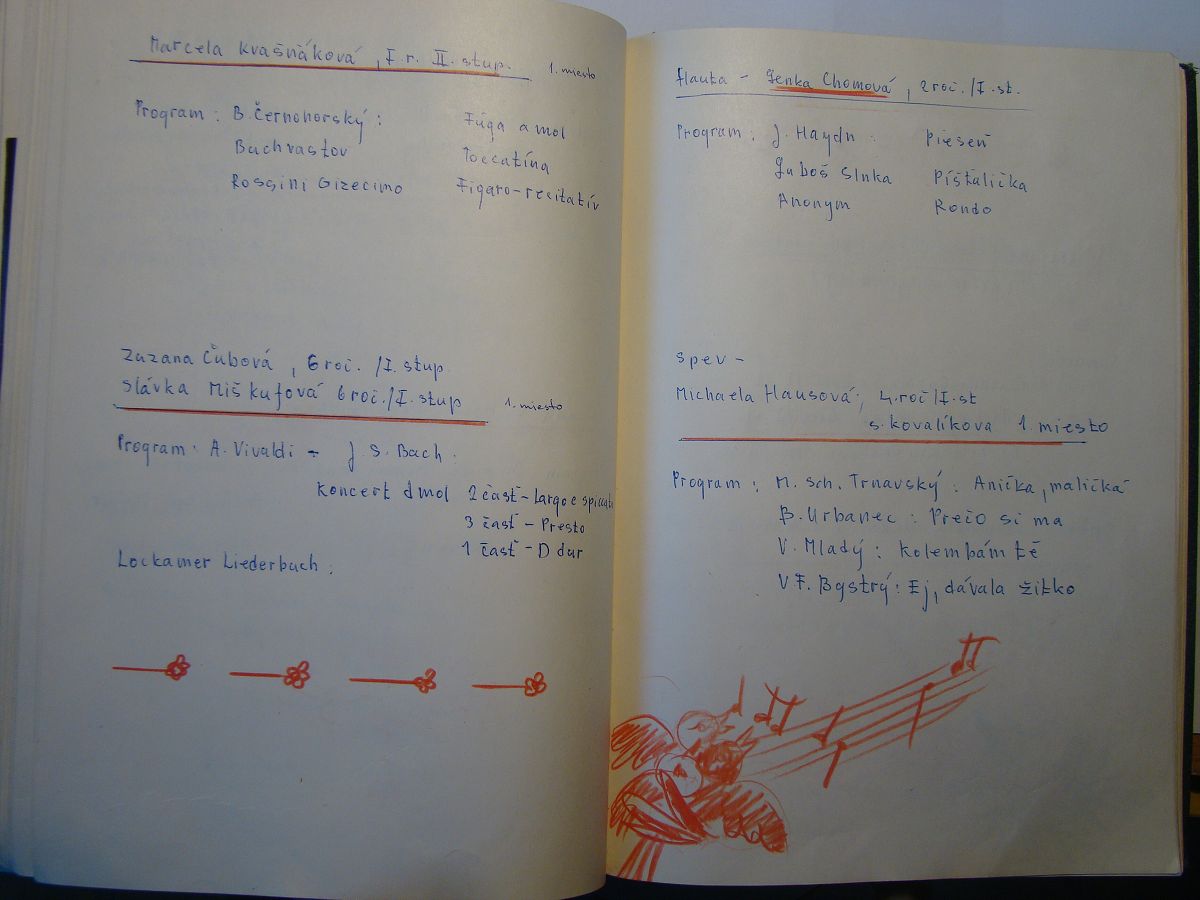 Marcela Kvašňáková, I.r. II. stup. 1. miesto
Program: B. Černohorský: Fúga a mol
Bachvastov Toccatína
Rossini Gizecimo Figaro-recitatív
Zuzana Čubová, 6 roč. /I. stup
Slávka Miškufová 6 roč./I. stup 1. miesto
Program: A. Vivaldi - J. S. Bach.
Koncert d mol 2 časť - Largo e spiccato
3 časť - Presto
1 časť - D dur
Lockamer Liederbuch:
flauta - Lenka Chomová, 2 roč./I. st.
Program: J. Haydn: Pieseň
Ľuboš Slnka Píšťalička
Anonym Rondo
Spev -
Michaela Hausová, 4. roč/I. st
s. Kovalíkova 1 miesto
Program: M. Sch. Trnavský: Anička, malička
B. Urbanec: Prečo si ma
V. Mladý: Kolembám tě
V F. Bystrý: Ej, dávala žitko